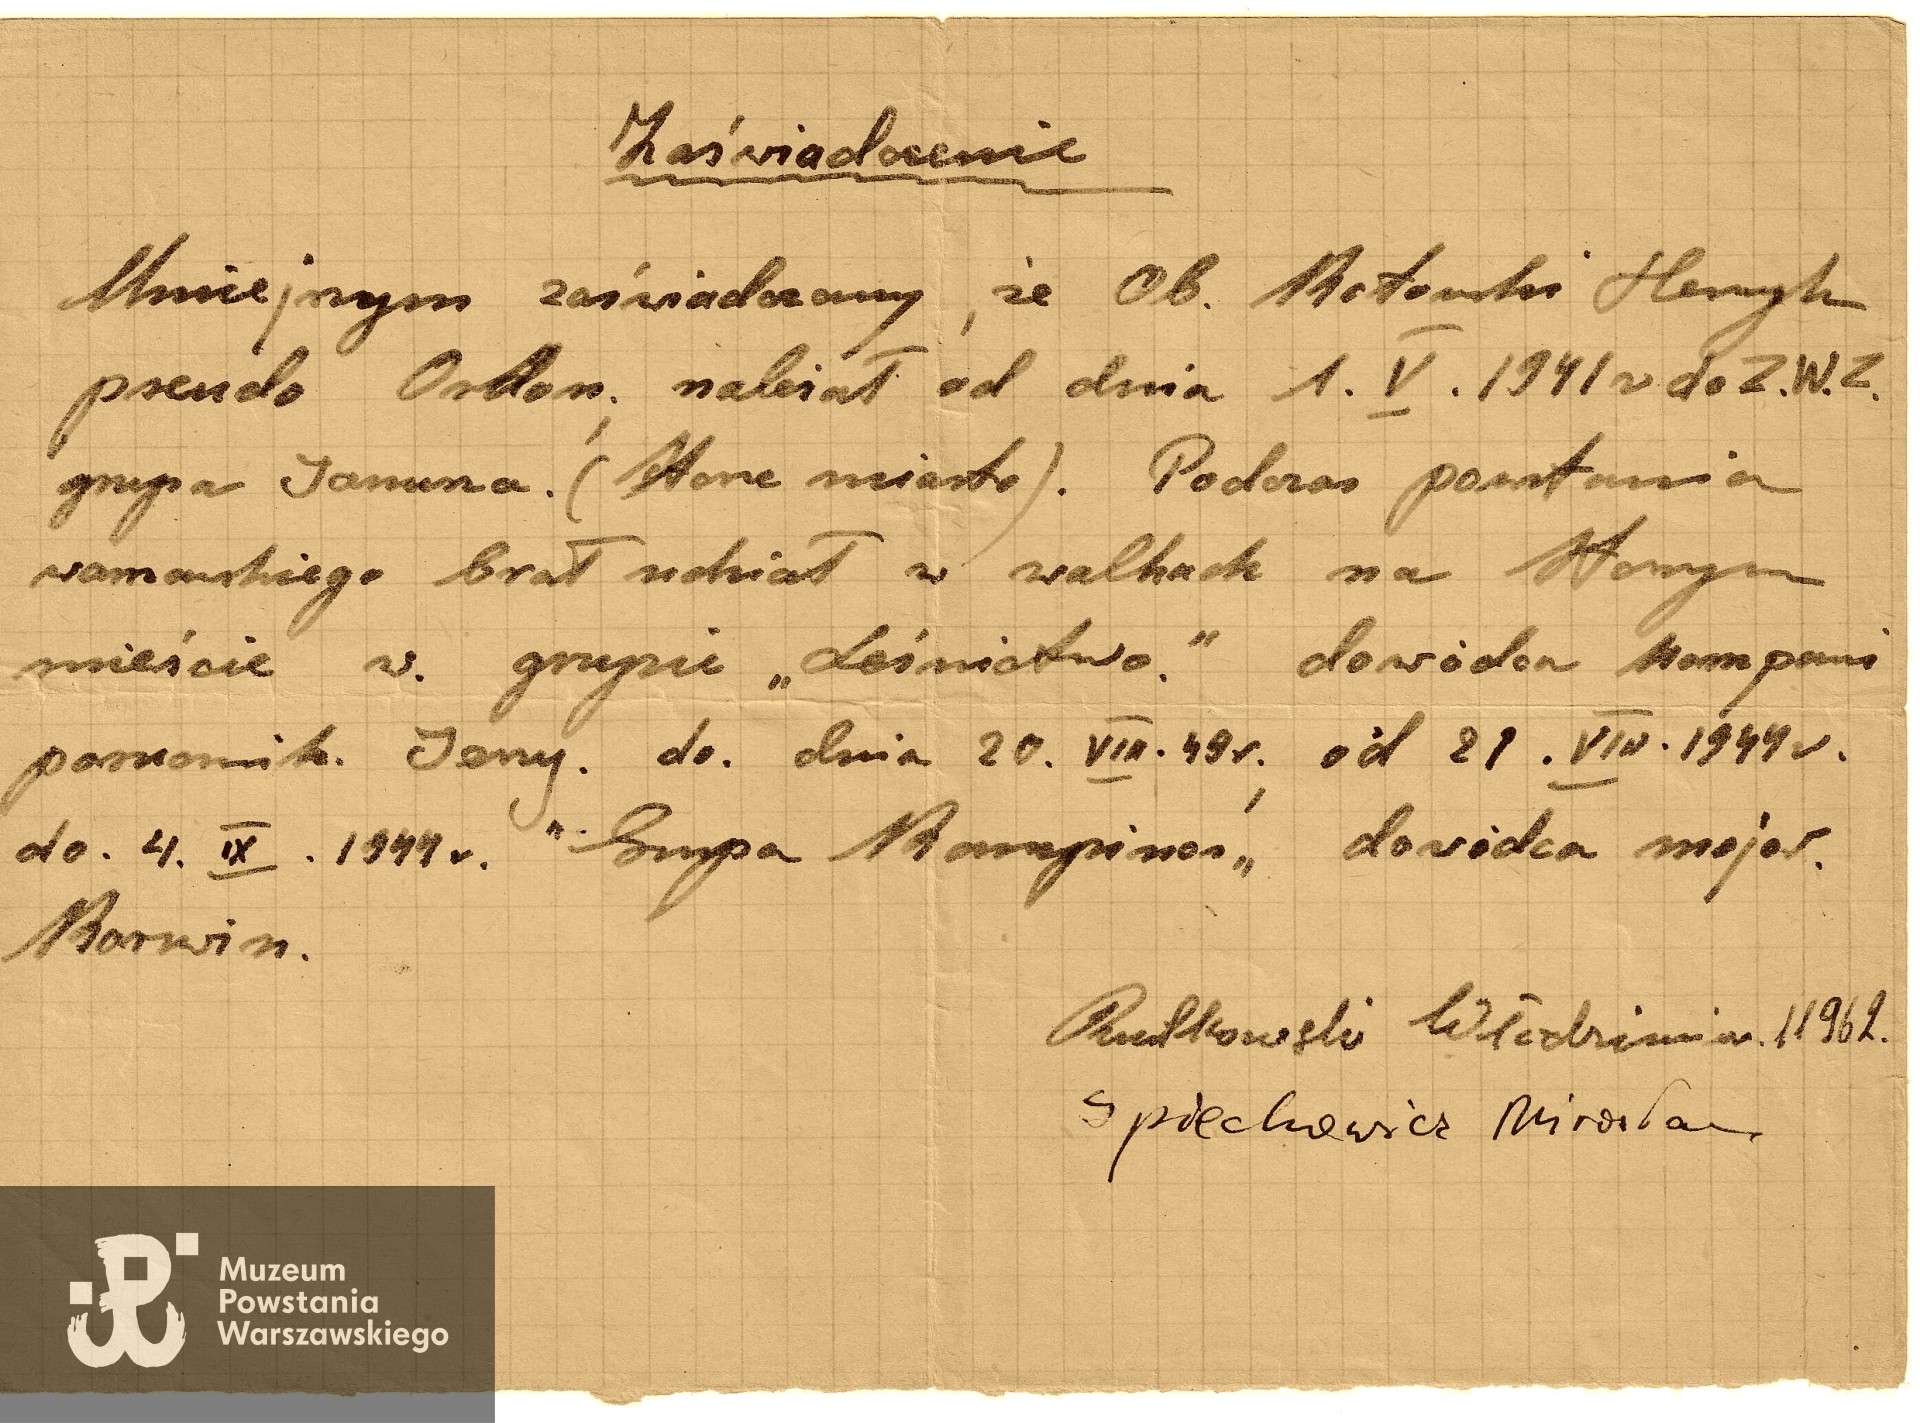 Zaświadczenie
Niniejszym zaświadczamy, że Ob. Kotowski Henryk
pseudo należał od dnia 1. V. 1941 r do Z.W.Z.
grupa Janusza. (Stare miasto). Podczas powstania
warszawskiego brał udział w walkach na Starym
mieście w. grupie „Leśnictwo." dowódca kompani
porucznik. Jerzy. do. dnia 20. VIII. 44 r. od 21. VIII. 1944 r.
do. 4. IX. 1944 r. "Grupa Kampinos„ dowódca major.
Korwin.
Rutkowski Włodzimierz. 11962.
Spiechowicz Mirosław
Muzeum
Powstania
Warszawskiego